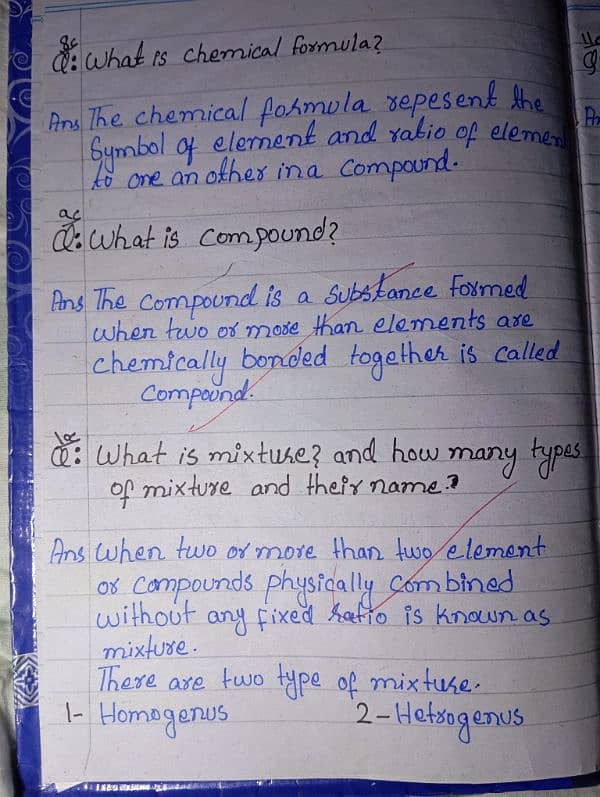 8c
Q: What is chemical formula?
Ans The chemical formula repesent the
Symbol of element and ratio of elemen
to one an other in a compound.
ac
Q: What is compound?
Ans The compound is a substance formed
when two or more than elements are
chemically bonded together is called
compound.
Q: What is mixture? and how many types
of mixture and their name?
Ans When two or more than two element
or compounds physically combined
without any fixed ratio is known as
mixture.
There are two type of mixture.
1- Homogenus 2- Hetrogenus